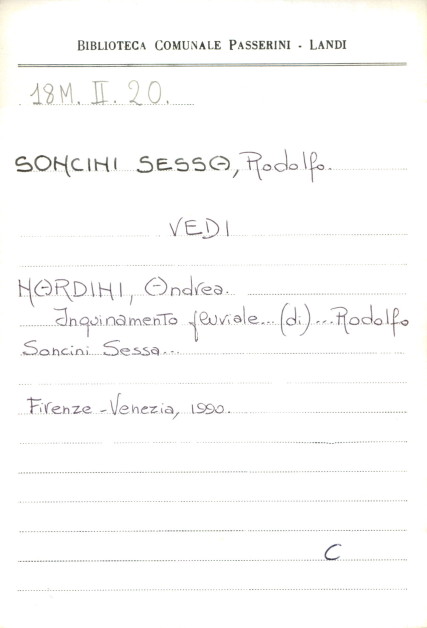 BIBLIOTECA COMUNALE PASSERINI - LANDI
18M. II. 20.
SONCINI SESSA, Rodolfo.
VEDI
NARDINI, Andrea.
Inquinamento fluviale...(di)...Rodolfo
Soncini Sessa...
Firenze - Venezia, 1990.
C